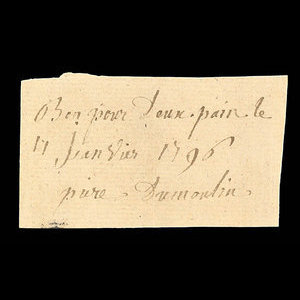 Bon pour Deux pain le
17 Janvier 1796
pière Dumoulin